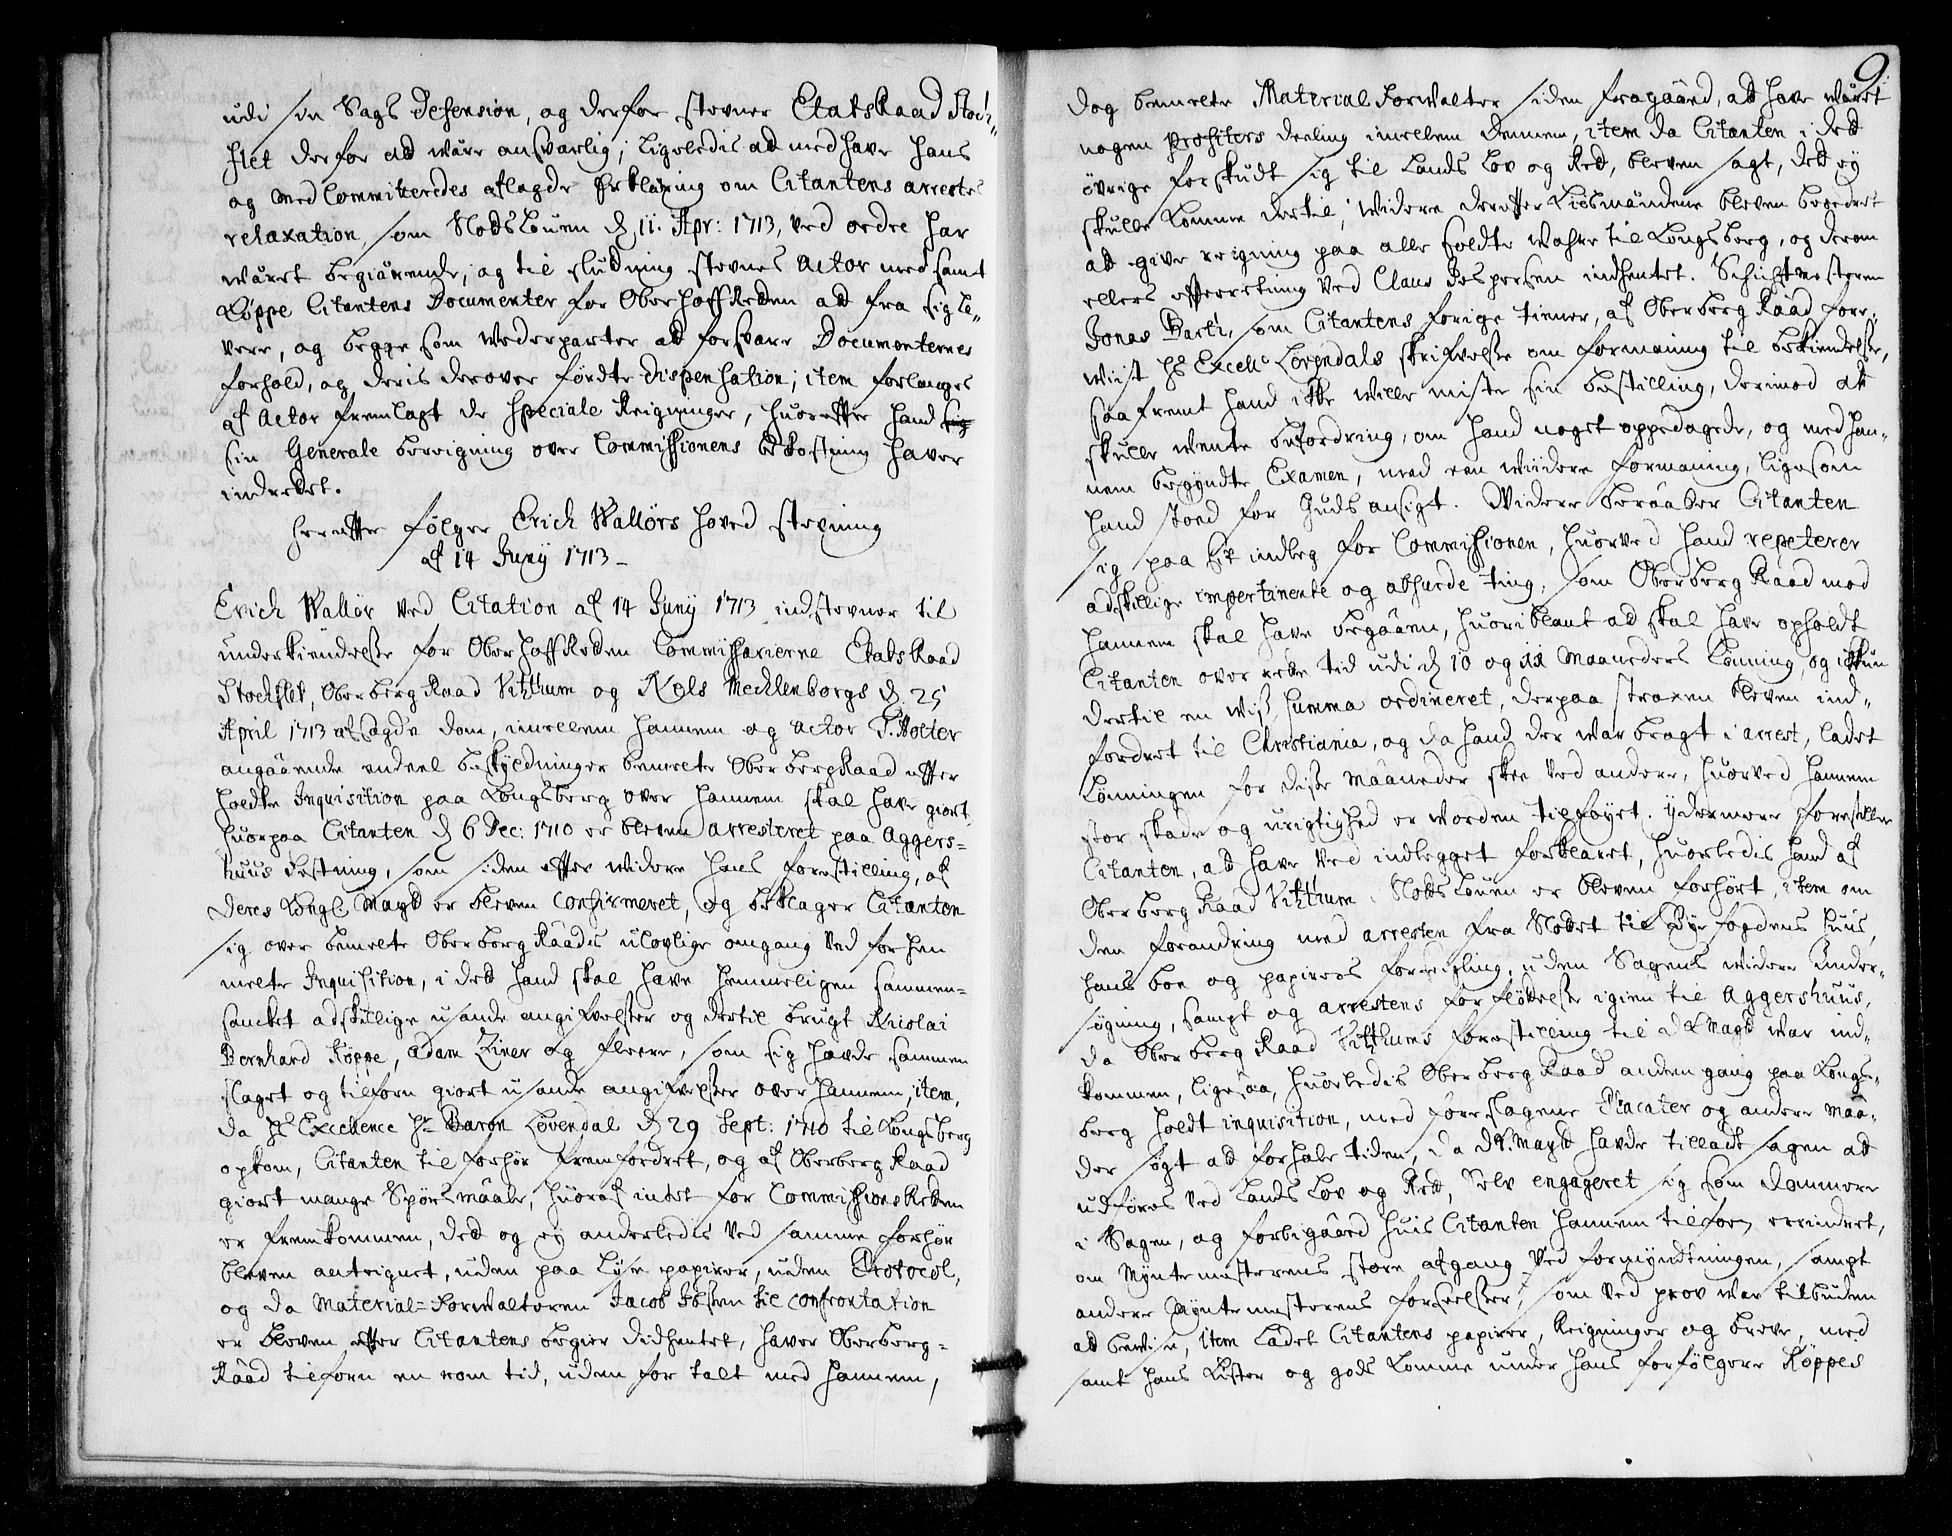 udi sin Sags Defension, og derfor stevner EtatsRaad Stoch-
flet derfor at wære answarlig; ligeledis at medhave hans
og MedCommitteredes aflagde Erklæring om Citantens arrestes
relaxation, som Slotslouen d 11. Apr: 1713, ved ordre har
wæret begiærende; og til slutning stevnes Actor med samt
Køppe Citantens Documenter for OberhoffRetten at fra sig le-
vere, og begge som Wederparter at forsvare Documenternes
forhold, og deris derover førdte Dispensation; item forlanges
af Actor fremlagt de Speciale Reigninger, huorefter hand
sin Generale bereigning over Commissionens Bekostning haver
indrettet.
Herefter følger Erich Wallørs Hoved stevning
af 14 Junij 1713 -
Erich Wallør ved Citation af 14 Junij 1713 indstevner til
underkiendelse for OberhoffRetten Commissarierne EtatsRaad
Stochflet, OberbergRaad Vitzthum og Niels Mechlenborgs d 25
April 1713 afsagde dom, imellem hannem og Actor T. Holter
angaaende endeel beskyldninger bemelte OberbergRaad effter
holdte Inquisition paa Kongsberg over hannem skal have giort,
huorpaa Citanten d 6 Dec: 1710 er bleven arresteret paa Aggers-
huus Festning, som siden effter widere hans forestilling, af
Deres Kongl Mayts er bleven Confirmeret, og beklager Citanten
sig over bemelte OberbergRaads ulovlige omgang ved forhen
melte Inquisition, i det hand skal have hemmeligen sammen-
sancket adskillige usande angifvelser og dertil brugt Nicolai
Bernhard Køppe, Adam Ziner og fleere, som sig havde sammen
slaget og tilforn giort usande angifvelser over hannem, item,
da Hs Excellence Hr Baron Løvendal d 29 Sept: 1710 til Kongsberg
opkom, Citanten til forhør fremfordret, og af OberbergRaad
giort mange Spørsmaale, huoraf intet for CommissionsRetten
er fremkommen, det og ej anderledis ved samme forhør
bleven antegnet, uden paa løse papirer, uden Protocol,
og da Material-Forwalteren Jacob til Confrontation
er bleven effter Citantens begier didhentet, haver Oberberg-
Raad tilforn en rom tid, uden for talt med hannem,
9.
dog bemelte Material Forwalter siden fragaaed, at have wæret
nogen Profiters deeling imellem dennem, item da Citanten i det
øvrige forskudt sig til Lands Lov og Ret, bleven sagt, det ej
skulle komme dertil; widere derefter Kiøbmændene bleven beordret
at give reigning paa alle soldte Wahre til Kongsberg, og derom
ellers efterretning ved Claus Jespersen indhentet. Schichtmesteren
Jonas Barth, som Citantens forige tiener, af OberbergRaad fore-
wiist Hs Excell: Løvendals skrifvelse om formaning til bekiendelse,
saafremt hand ikke wille miste sin bestilling, derimod at
skulle wente befordring, om hand noget oppedagede, og med han-
nem begyndte Examen, med een wiidere formaning, ligesom
hand stoed for Guds ansigt. Widere beraaber Citanten
sig paa sit indleg for Commissionen, huorved hand repeterer
adskillige impertinente og absurde ting, som OberbergRaad mod
hannem skal have begaaen, huoriblant at skal have opholdt
Citanten over rette tid udi d 10 og 11 Maaneders Lønning, og ikkun
dertil en wiss Summa ordineret, derpaa straxen bleven ind-
fordret til Christiania, og da hand der war bragt i arrest, ladet
Lønningen for disse Maaneder skee ved andere, huorved hannem
stor skade og urigtighed er worden tilføyet. ydermere forestiller
Citanten, at have ved indlegget forklaret, huorledis hand af
OberbergRaad Vitzthum i Slotslouen er bleven forhørt, item om
den forandring med arresten fra Slottet til Byefogdens Huus,
hans boe og papirers forseigling, uden Sagens widere Under-
søgning, sampt og arrestens forfløttelse igien til Aggershuus,
da OberbergRaad Vitzthums forestilling til d K Mayts war ind-
kommen, ligesaa, huorledis OberbergRaad anden gang paa Kongs-
berg holdt inquisition, med foreslagene Placater og andere maa-
der søgt at forhale tiden, da d K. Mayts havde tilladt sagen at
udføres ved Lands Lov og Ret, selv engageret sig som dommere
i Sagen, og forbigaaed huis Citanten hannem tilforn errindret,
om Myntemesterens store afgang ved formyndtningen, sampt
andere Myntemesterens forseelser, som ved prov war tilbuden
at bevise, item ladet Citantens papirer, Reigninger og breve, med
samt hans Kister og gods komme under hans forfølgere Køppes